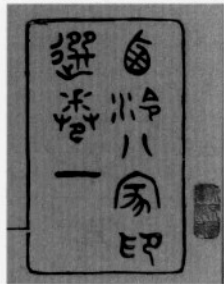 西泠八家印
選卷一